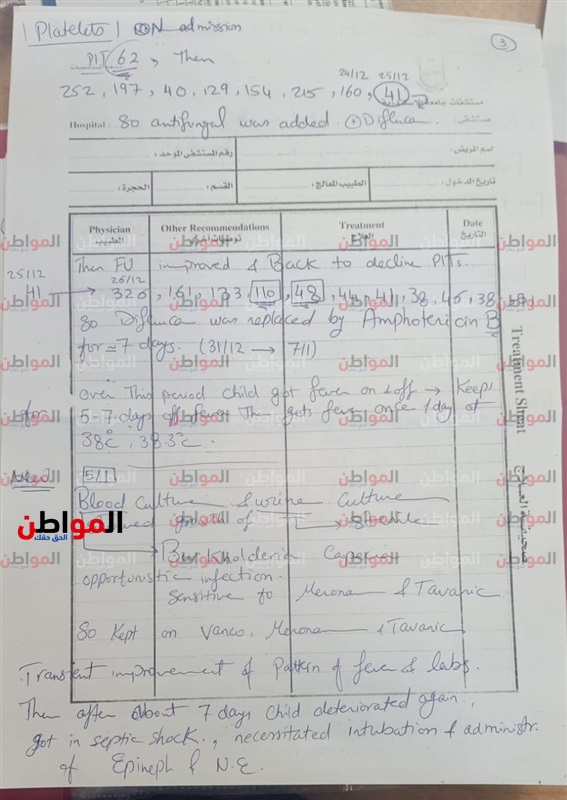 | Platelets | ON admission
3
PlT 62, Then
24/12 25/12
252, 197, 40, 129, 154, 215, 160, 41
مستشفيات جامعة
Hospital: So antifungal was added. Difluca مستشفى:
اسم المريض: رقم المستشفى الموحد:
تاريخ الدخول: الطبيب المعالج: القسم: الحجرة:
Physician Other Recommendations Treatment Date
الطبيب توصيات أخرى العلاج التاريخ
Treatment Sheet
صحيفة العلاج
Then FU improved & Back to decline PlTs.
25/12 26/12
41 → 326, 161, 133, 110, 48, 44, 41, 38, 45, 38
So Difluca was replaced by Amphotericin B
for = 7 days. (31/12 → 7/1)
Over This period child got fever on & off → Keeps
5-7 days off fever Then gets fever once / day at
38°c, 38.3°c.
5/1
Blood Culture & urine Culture
growth of → Sterile
Burkholderia
opportunistic infection.
Sensitive to Merona & Tavanic
So Kept on Vanco, Merona & Tavanic
Transient improvement of Pattern of fever & labs.
Then after about 7 days child deteriorated again,
got in septic shock, necessitated intubation & administr.
of Epineph & N.E.
المواطن
الحق حقك